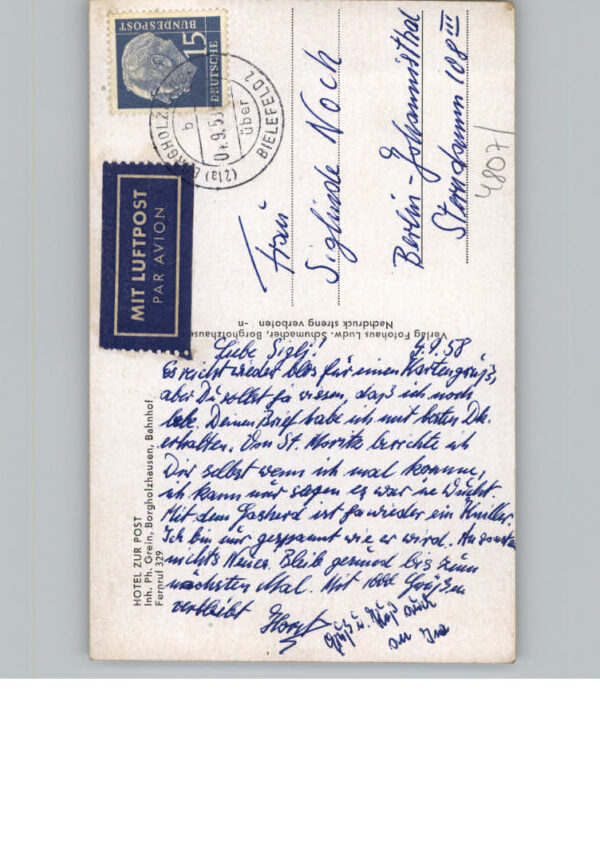 DEUTSCHE
BUNDESPOST
15
(21a) BORGHOLZ
über
BIELEFELD 2
b
9.58
MIT LUFTPOST
PAR AVION
Frau
Siglinde Noch
Berlin-Johannisthal
Sterndamm 108 III
4807/
Verlag Fotohaus Ludw. Schumacher, Borgholzhausen
Nachdruck streng verboten -n-
HOTEL ZUR POST
Inh. Ph. Grein, Borgholzhausen, Bahnhof
Fernruf 329
Liebe Sigli! 4.9.58
Es reicht wieder blos für einen Kartengruß,
aber Du sollst ja wissen, daß ich noch
lebe. Deinen Brief habe ich mit besten Dk.
erhalten. Von St. Moritz berichte ich
Dir selbst wenn ich mal komme,
ich kann nur sagen es war 'ne Wucht.
Mit dem Gasherd ist ja wieder ein Knüller.
Ich bin nur gespannt wie er wird. Ansonsten
nichts Neues. Bleib gesund bis zum
nächsten Mal. Mit 1000 Grüßen
verbleibt Horst
Gruß u. Kuß auch
an